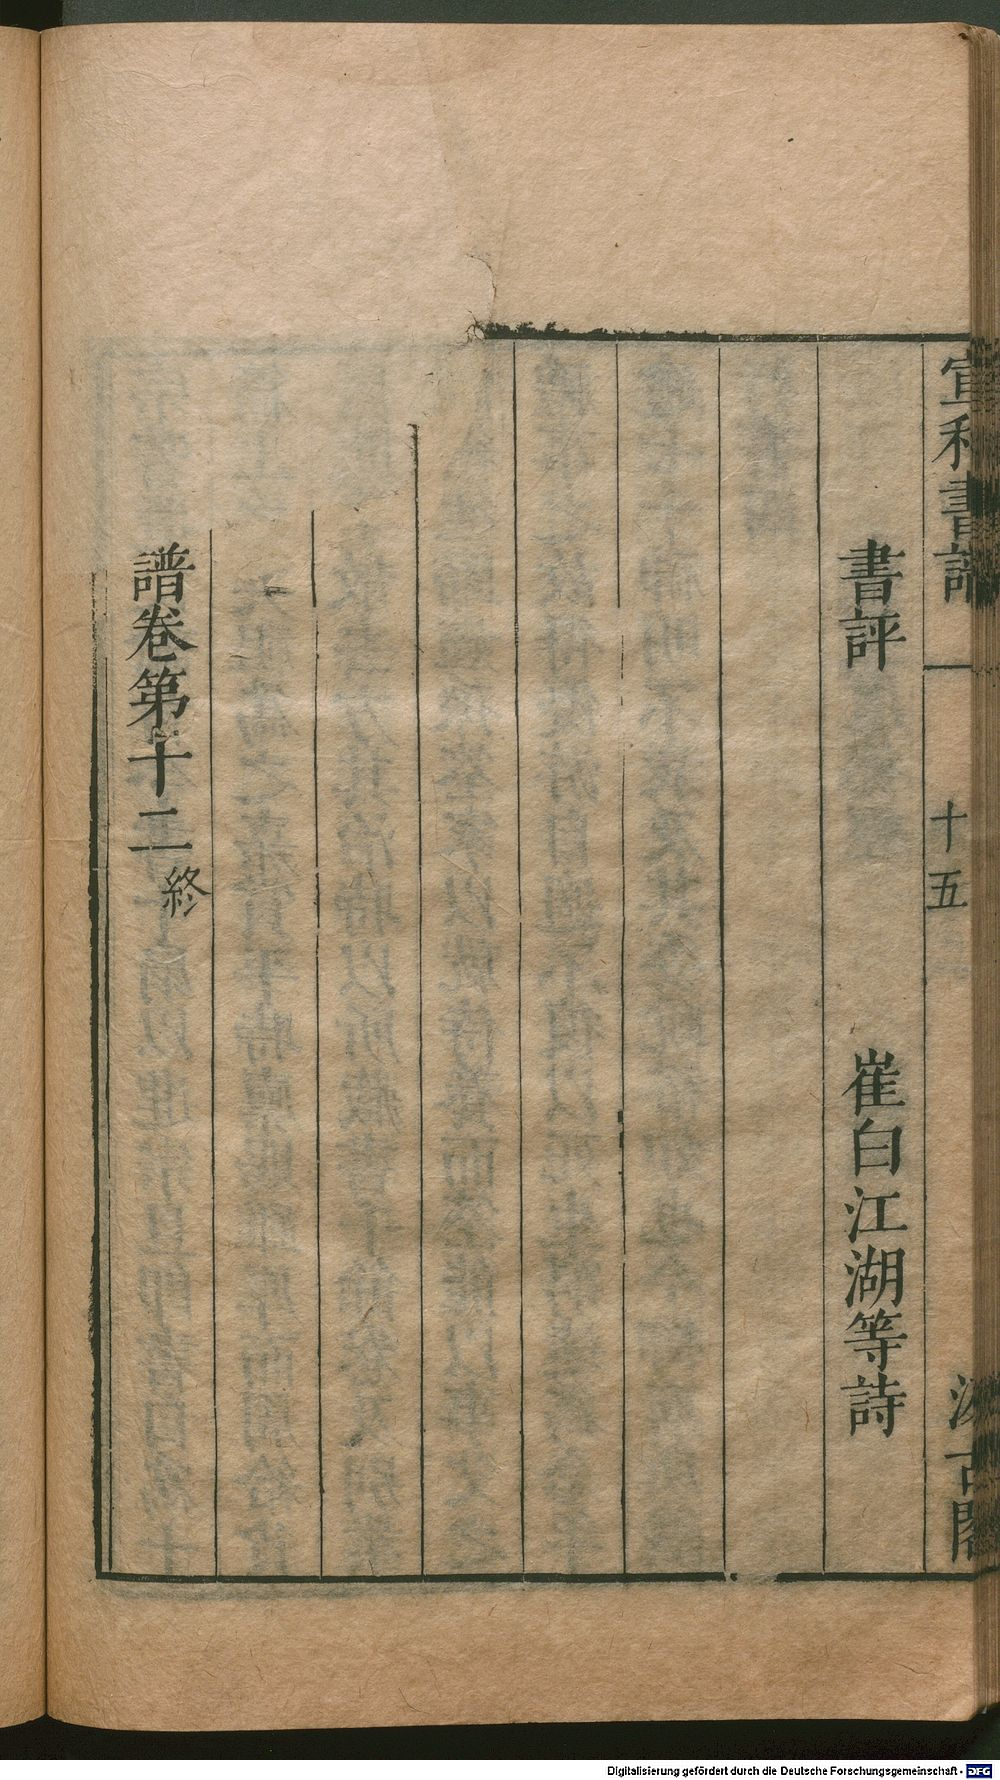 宣和書譜 十五 汲古閣
書評 崔白江湖等詩
譜卷第十二終
Digitalisierung gefördert durch die Deutsche Forschungsgemeinschaft - DFG